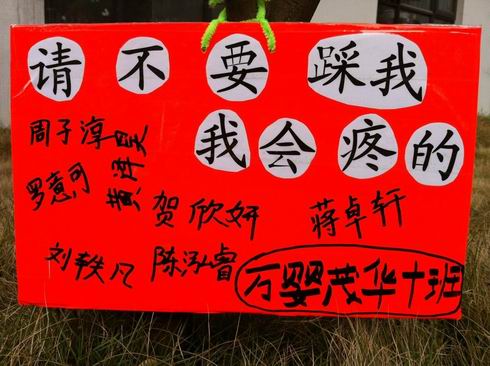 请不要踩我
我会疼的
周子淳
黄泽昊
罗意可
贺欣妍
蒋卓轩
刘轶凡
陈泓睿
万婴茂华十班